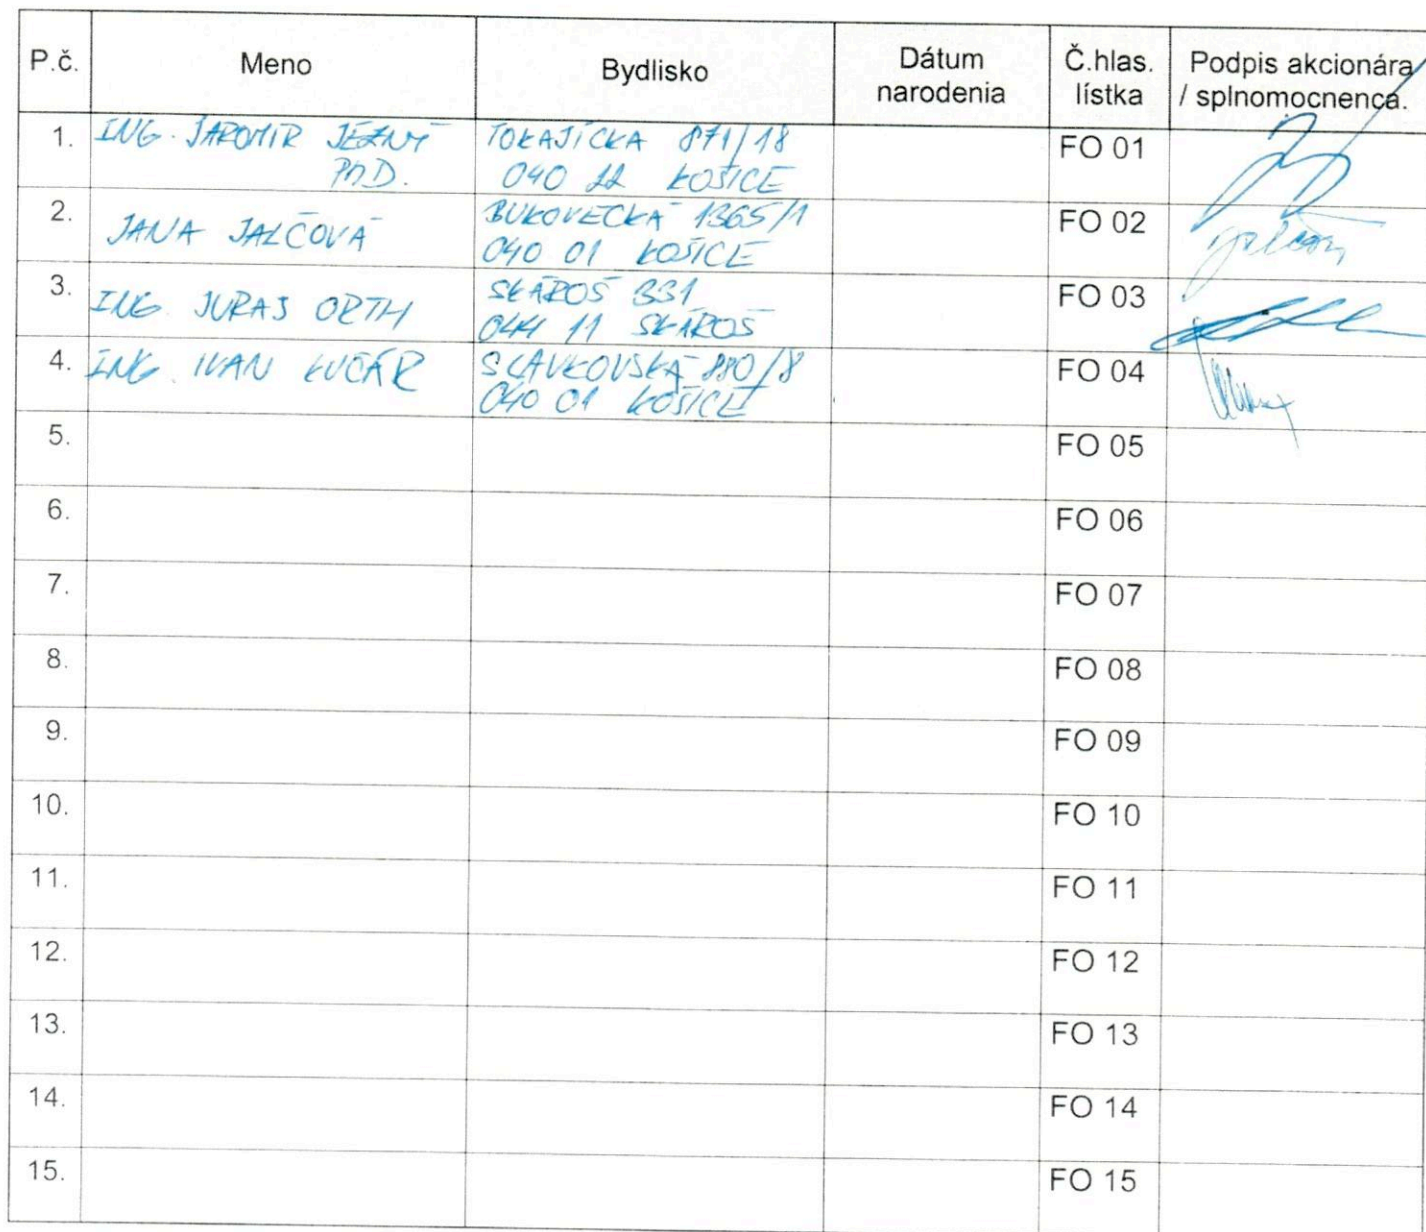 P.č. Meno Bydlisko Dátum narodenia Č.hlas. lístka Podpis akcionára / splnomocnenca.
1. ING. JAROMÍR JEZNÝ TOKAJÍCKA 871/18 FO 01
PhD. 040 22 KOŠICE
2. JANA JALČOVÁ BUKOVECKÁ 1365/1 FO 02
040 01 KOŠICE
3. ING. JURAJ ORTH SKÁROŠ 331 FO 03
044 11 SKÁROŠ
4. ING. IVAN KUČÁR SLAVKOVSKÁ 880/8 FO 04
040 01 KOŠICE
5. FO 05
6. FO 06
7. FO 07
8. FO 08
9. FO 09
10. FO 10
11. FO 11
12. FO 12
13. FO 13
14. FO 14
15. FO 15